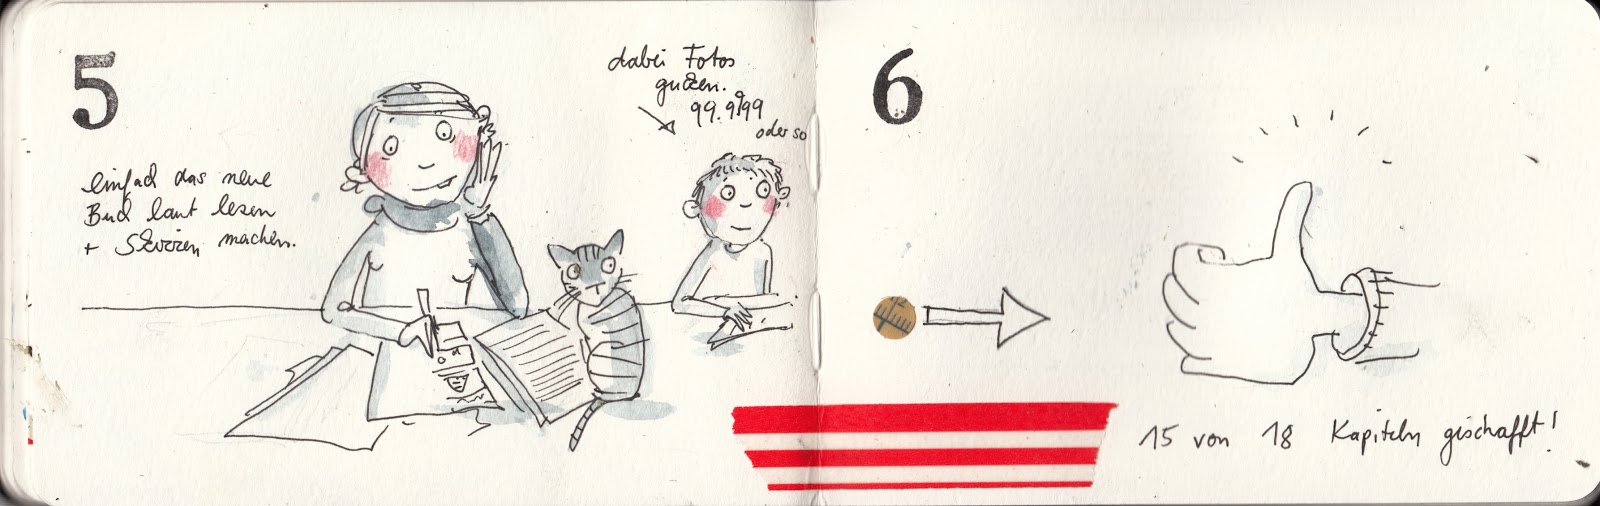 5
einfach das neue
Buch laut lesen
+ Skizzen machen.
dabei Fotos
gucken.
99.9/99
oder so
6
15 von 18 Kapiteln geschafft!